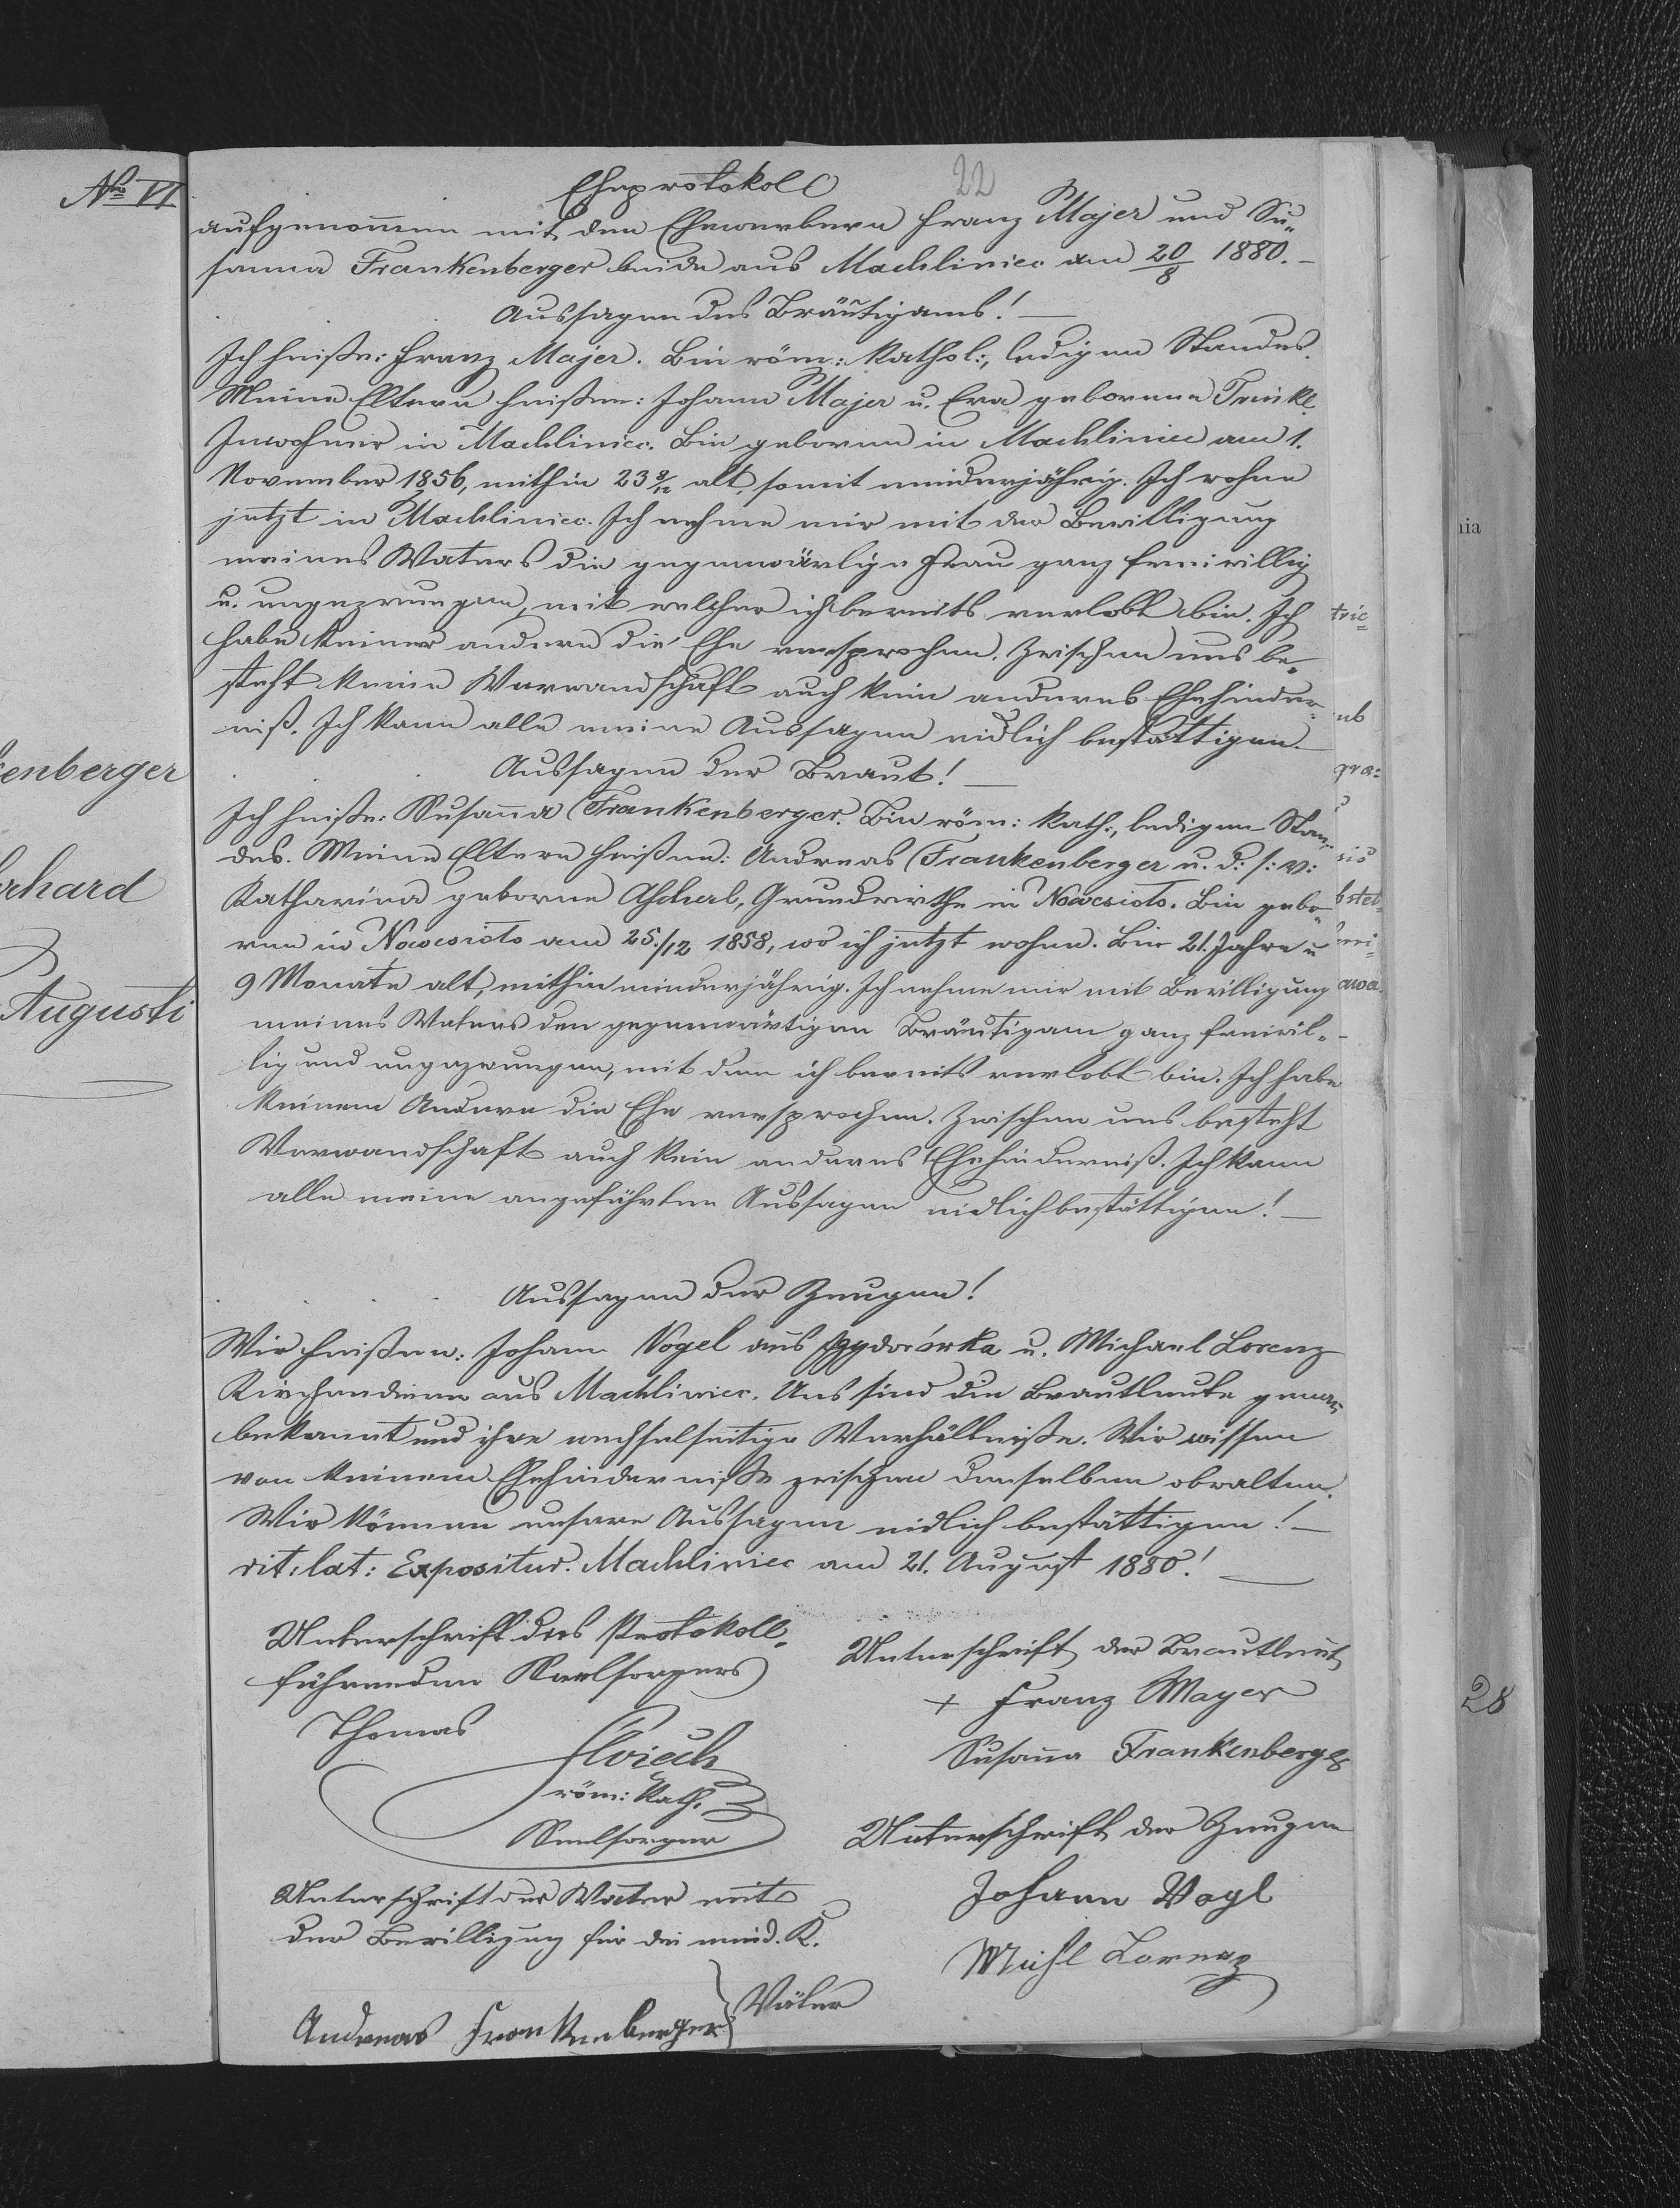 Nro VI
22
Eheprotokoll
aufgenom̅en mit den Ehewerbern Franz Majer und Su„
sanna Frankenberger beide aus Machliniec am 20/8 1880. –
Aussagen des Bräutigams! —
Ich heiße: Franz Majer. Bin röm: kathol:, ledigen Standes.
Meine Eltern heißen: Johann Majer u. Eva geborene Trinkl.
Inwohner in Machliniec. Bin geboren in Machliniec am 1.
November 1856, mithin 23 9/12 alt, somit minderjährig. Ich wohne
jetzt in Machliniec. Ich nehme mir mit der Bewilligung
meines Vaters die gegenwärtige Frau ganz freiwillig
u. ungezwungen, mit welcher ich bereits verlobt bin. Ich
habe keiner andern die Ehe versprochen. Zwischen uns be„
steht keine Verwandschaft auch kein anderes Ehehinder„
niß. Ich kann alle meine Aussagen eidlich bestättigen. —
Aussagen der Braut! —
Ich heiße: Susan̅a Frankenberger. Bin röm: kath:, ledigen Stan„
des. Meine Eltern heißen: Andreas Frankenberger u. d: s: w:
Katharina geborne Ascherl, Grundwirthe in Nowesioło. Bin gebo„
ren in Nowesioło am 25./12 1858, wo ich jetzt wohne. Bin 21. Jahre u
9 Monate alt, mithin minderjährig. Ich nehme mir mit Bewilligung
meines Vaters den gegenwärtigen Bräutigam ganz freiwil„
lig und ungezwungen, mit dem ich bereits verlobt bin. Ich habe
keinem Andern die Ehe versprochen. Zwischen uns besteht
Verwandschaft auch kein anderes Ehehinderniß. Ich kann
alle meine angeführten Aussagen eidlich bestättigen! —
Aussagen der Zeugen!
Wir heißen: Johann Vogel aus Izydorówka u. Michael Lorenz
Kirchendiener aus Machliniec. Uns sind die Brautleute genau
bekannt und ihre wechselseitige Verhältniße. Wir wissen
von keinem Ehehinderniße zwischen denselben obwalten.
Wir können unsere Aussagen eidlich bestättigen! —
rit: lat: Expositur. Machliniec am 21. August 1880! —
Unterschrift des Protokoll„
führenden Seelsorgers
Thomas
röm: kath.
Seelsorger
Unterschrift der Brautleut
+ Franz Mayer
Susan̅a Frankenberger
Unterschrift der Zeugen
Johann Vogl
Michl Lorenz
Unterschrift der Väter mit
der Bewilligung für die mind. K.
Andreas Frankenberger } Väter
enberger
rhard
Augusti
tric=
ub
gra=
stel=
awa
nia
28